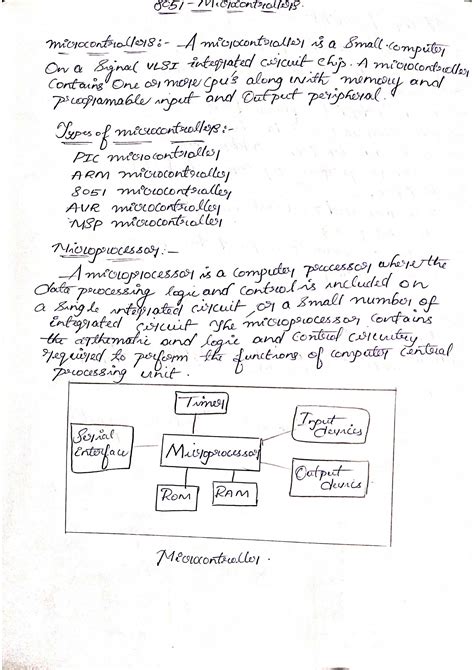 8051 - Microcontrollers.
microcontrollers:- A microcontroller is a small computer
On a Signal VLSI integrated circuit chip. A microcontroller
contains One or more Cpu's along with memory and
programable input and Output peripheral.
Types of microcontrollers:-
PIC microcontroller
ARM microcontroller
8051 microcontroller
AVR microcontroller
MSP microcontroller
Microprocessor:-
A microprocessor is a computer processor where the
data processing logic and control is included on
a single integrated circuit, or a small number of
integrated circuit. The microprocessor contains
the arthematic and logic and control circuitry
required to perform the functions of computer central
processing unit.
Timer
Input
devices
Serial
Enterface
Microprocessor
Output
devics
ROM
RAM
Microcontroller.